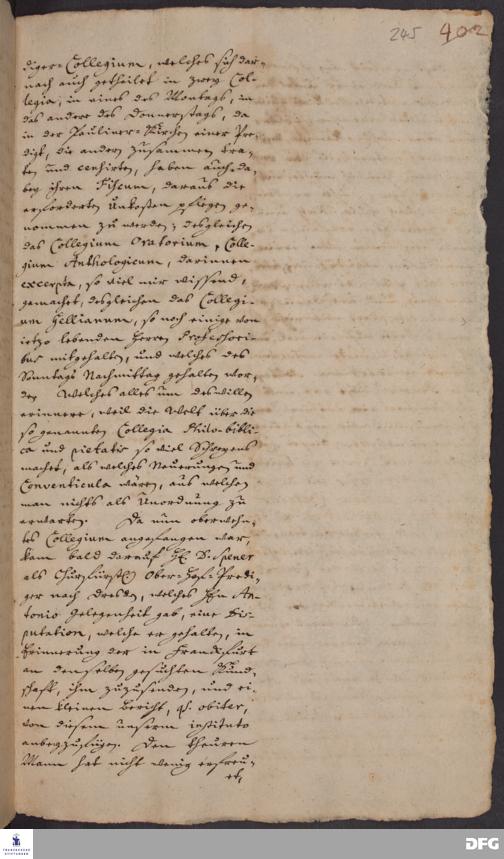 245 402
diger-Collegium, welches sich dar-
nach auch getheilet in zwey Col-
legia, in eines des Montags, in
das andere des Donnerstags, da
in der Pauliner-Kirchen einer Pre-
digt, die andern zusammen tra-
ten und censirten, haben auch da-
bey ihren Fiscum, daraus die
erforderten Unkosten pflegen ge-
nommen zu werden; desgleichen
das Collegium Oratorium, Colle-
gium Anthologicum, darinnen
excerpta, so viel mir wissend,
gemachet, desgleichen das Collegi-
um Gellianum, so noch einige von
ietzo lebenden Herren Professori-
bus mitgehalten, und welches des
Sonntags Nachmittag gehalten wor-
den. Welches alles um deswillen
erinnere, weil die Welt über die
so genannten Collegia Philo-bibli-
ca und pietatis so viel Schreyens
machet, als welches Neuerungen und
Conventicula wären, aus welchen
man nichts als Unordnung zu
erwarten. Da nun oberwehn-
tes Collegium angefangen war,
kam bald darauf H. D. Spener
als Churfürstl. Ober-Hof-Predi-
ger nach Dresden, welches Hn An-
tonio Gelegenheit gab, eine Dis-
putation, welche er gehalten, in
Erinnerung der in Franckfurt
an denselben gesuchten Kund-
schafft, ihm zuzusenden, und ei-
nen kleinen Bericht, qs. obiter,
von diesem unserm instituto
anbeyzufügen. Den theuren
Mann hat nicht wenig erfreu-
et,
FRANCKESCHE
STIFTUNGEN
DFG